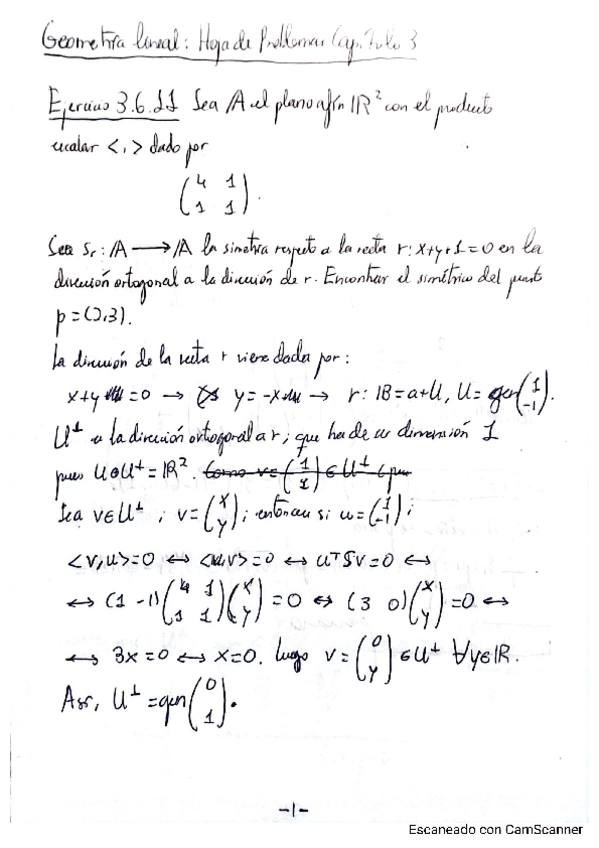 Geometría lineal: Hoja de Problemas Capítulo 3
Ejercicio 3.6.11 Sea A el plano afín IR² con el producto
escalar <,> dado por
(4 1
1 1).
Sea Sr: A → A la simetría respecto a la recta r: x+y+1=0 en la
dirección ortogonal a la dirección de r. Encontrar el simétrico del punto
p = (0,3).
La dirección de la recta r viene dada por:
x+y =0 → y = -x → r: IB = a+U, U = gen(1 -1).
U⊥ es la dirección ortogonal a r; que ha de ser dimensión 1
pues U⊕U⊥ = IR². Como v=(1 1) ∈ U⊥ (pues
Sea v∈U⊥ ; v=(x y); entonces si u=(1 -1);
<v,u>=0 ↔ <u,v>=0 ↔ uᵀSv=0 ↔
↔ (1 -1)(4 1 1 1)(x y) = 0 ↔ (3 0)(x y) = 0 ↔
↔ 3x = 0 ↔ x=0. Luego v = (0 y) ∈ U⊥ ∀y∈IR.
Así, U⊥ = gen(0 1).
-1-
Escaneado con CamScanner